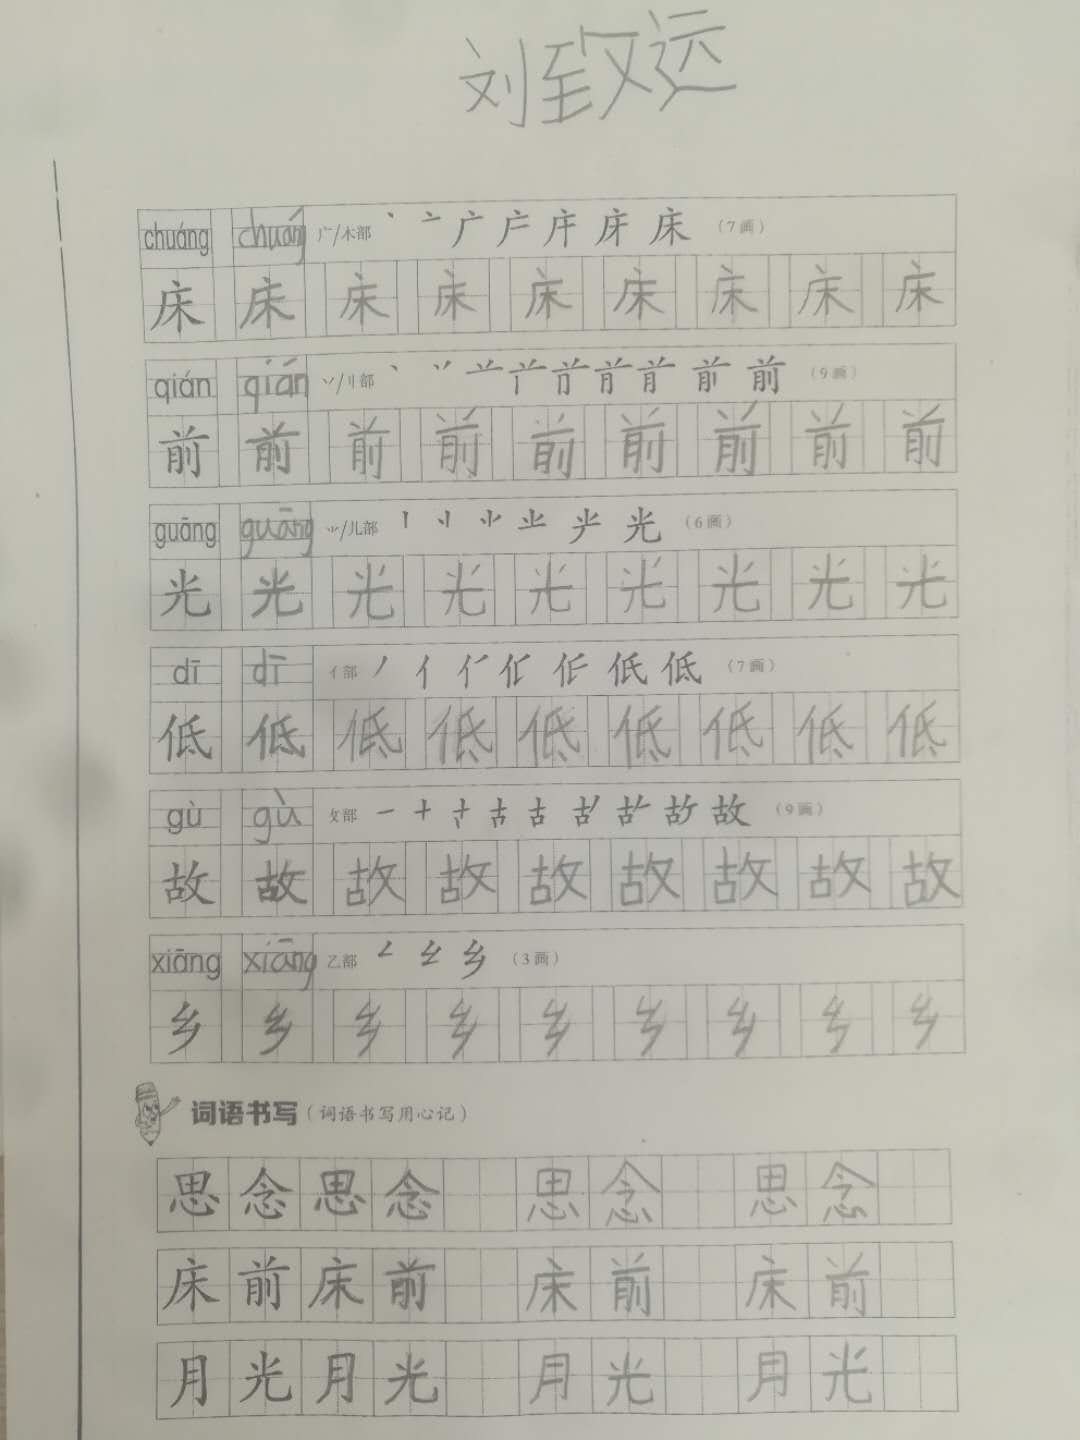 刘致远
chuáng chuáng 广/木部 丶 亠 广 庐 庄 床 床 (7画)
床 床 床 床 床 床 床 床 床
qián qián 丷/刂部 丶 丷 䒑 前 (9画)
前 前 前 前 前 前 前 前 前
guāng guāng ⺌/儿部 丨 光 (6画)
光 光 光 光 光 光 光 光 光
dī dī 亻部 丿 亻 低 低 (7画)
低 低 低 低 低 低 低 低 低
gù gù 攵部 一 十 古 古 故 故 (9画)
故 故 故 故 故 故 故 故 故
xiāng xiāng 乙部 乡 (3画)
乡 乡 乡 乡 乡 乡 乡 乡 乡
词语书写(词语书写用心记)
思念思念 思念 思念
床前床前 床前 床前
月光月光 月光 月光